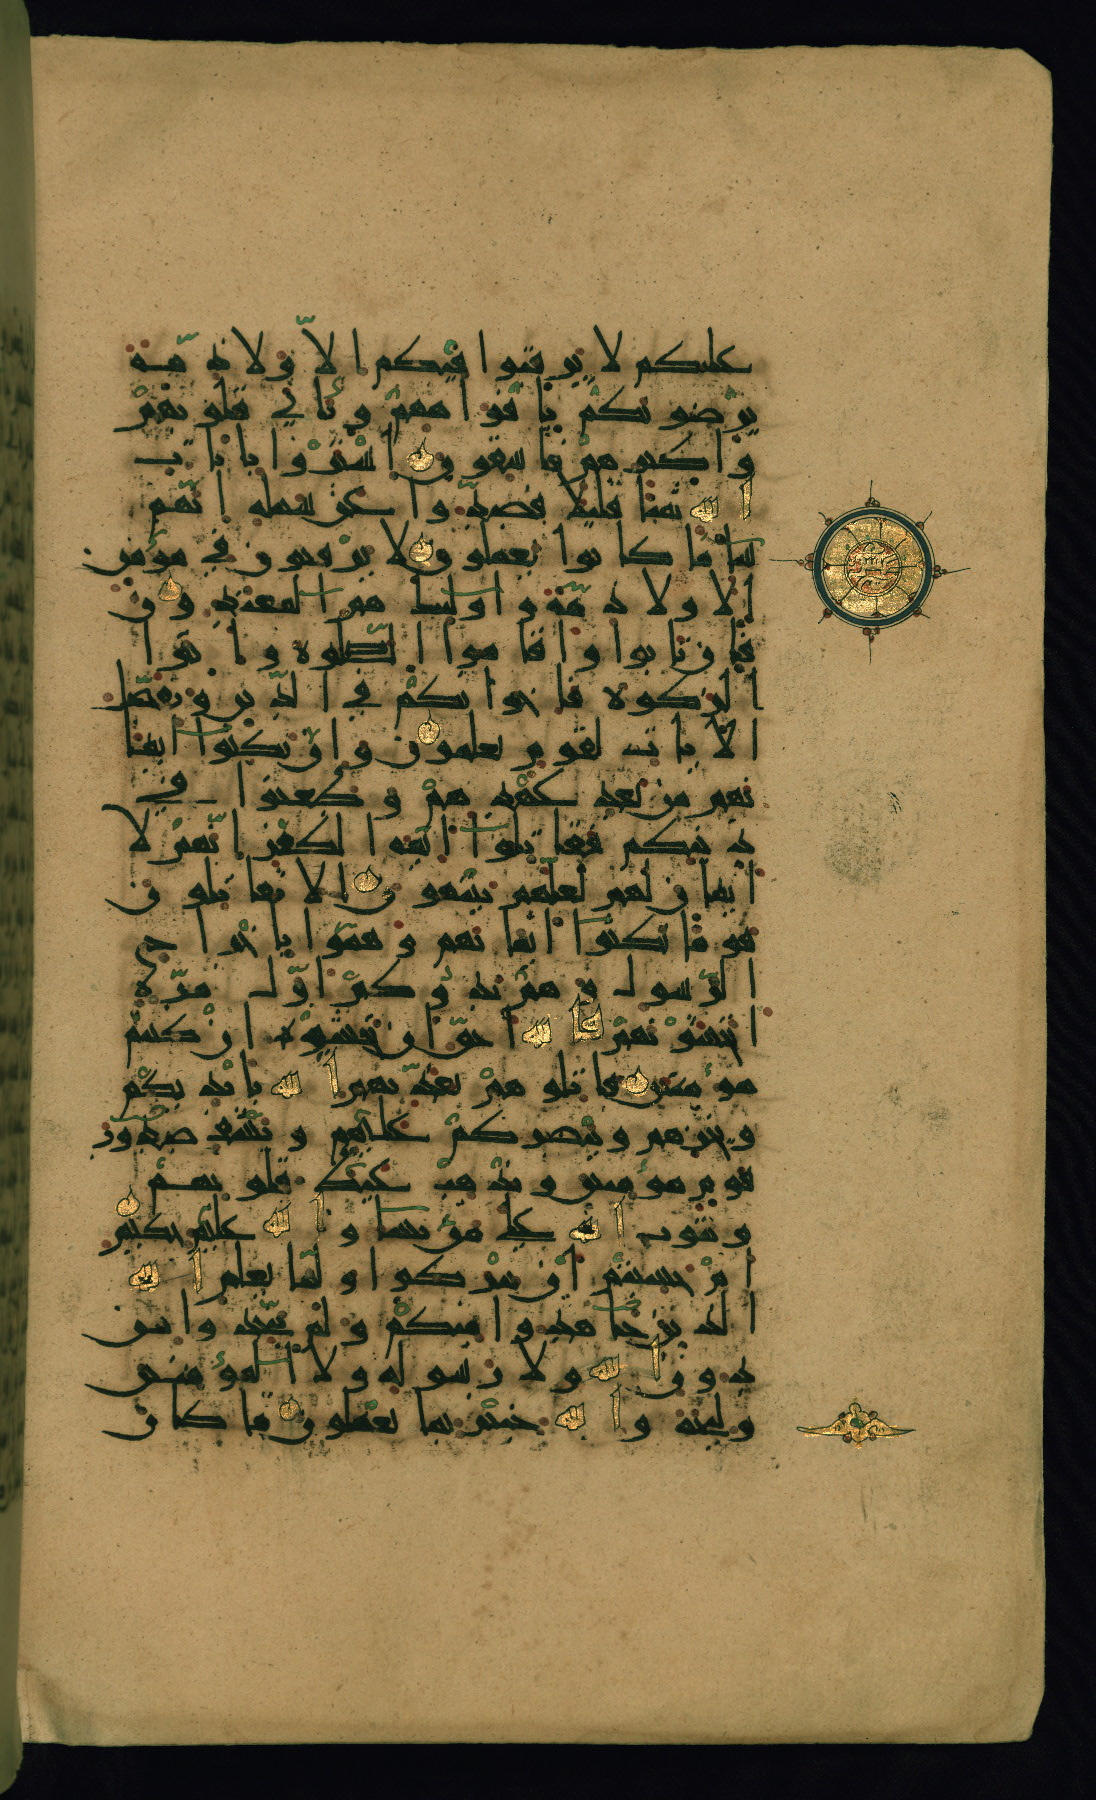 عليكم لا يرقبوا فيكم الا ولا ذمة
يرضونكم بافواههم وتابى قلوبهم
واكثرهم فاسقون اشتروا بايات
الله ثمنا قليلا فصدوا عن سبيله انهم
ساء ما كانوا يعملون لا يرقبون في مؤمن
الا ولا ذمة واولئك هم المعتدون
فان تابوا واقاموا الصلوة واتوا
الزكوة فاخوانكم في الدين ونفصل
الايات لقوم يعلمون وان نكثوا ايما
نهم من بعد عهدهم وطعنوا في
دينكم فقاتلوا ائمة الكفر انهم لا
ايمان لهم لعلهم ينتهون الا تقاتلون
قوما نكثوا ايمانهم وهموا باخراج
الرسول وهم بدؤكم اول مرة
اتخشونهم فالله احق ان تخشوه ان كنتم
مؤمنين قاتلوهم يعذبهم الله بايديكم
ويخزهم وينصركم عليهم ويشف صدور
قوم مؤمنين ويذهب غيظ قلوبهم
ويتوب الله على من يشاء والله عليم حكيم
ام حسبتم ان تتركوا ولما يعلم الله
الذين جاهدوا منكم ولم يتخذوا من
دون الله ولا رسوله ولا المؤمنين
وليجة والله خبير بما تعملون ما كان